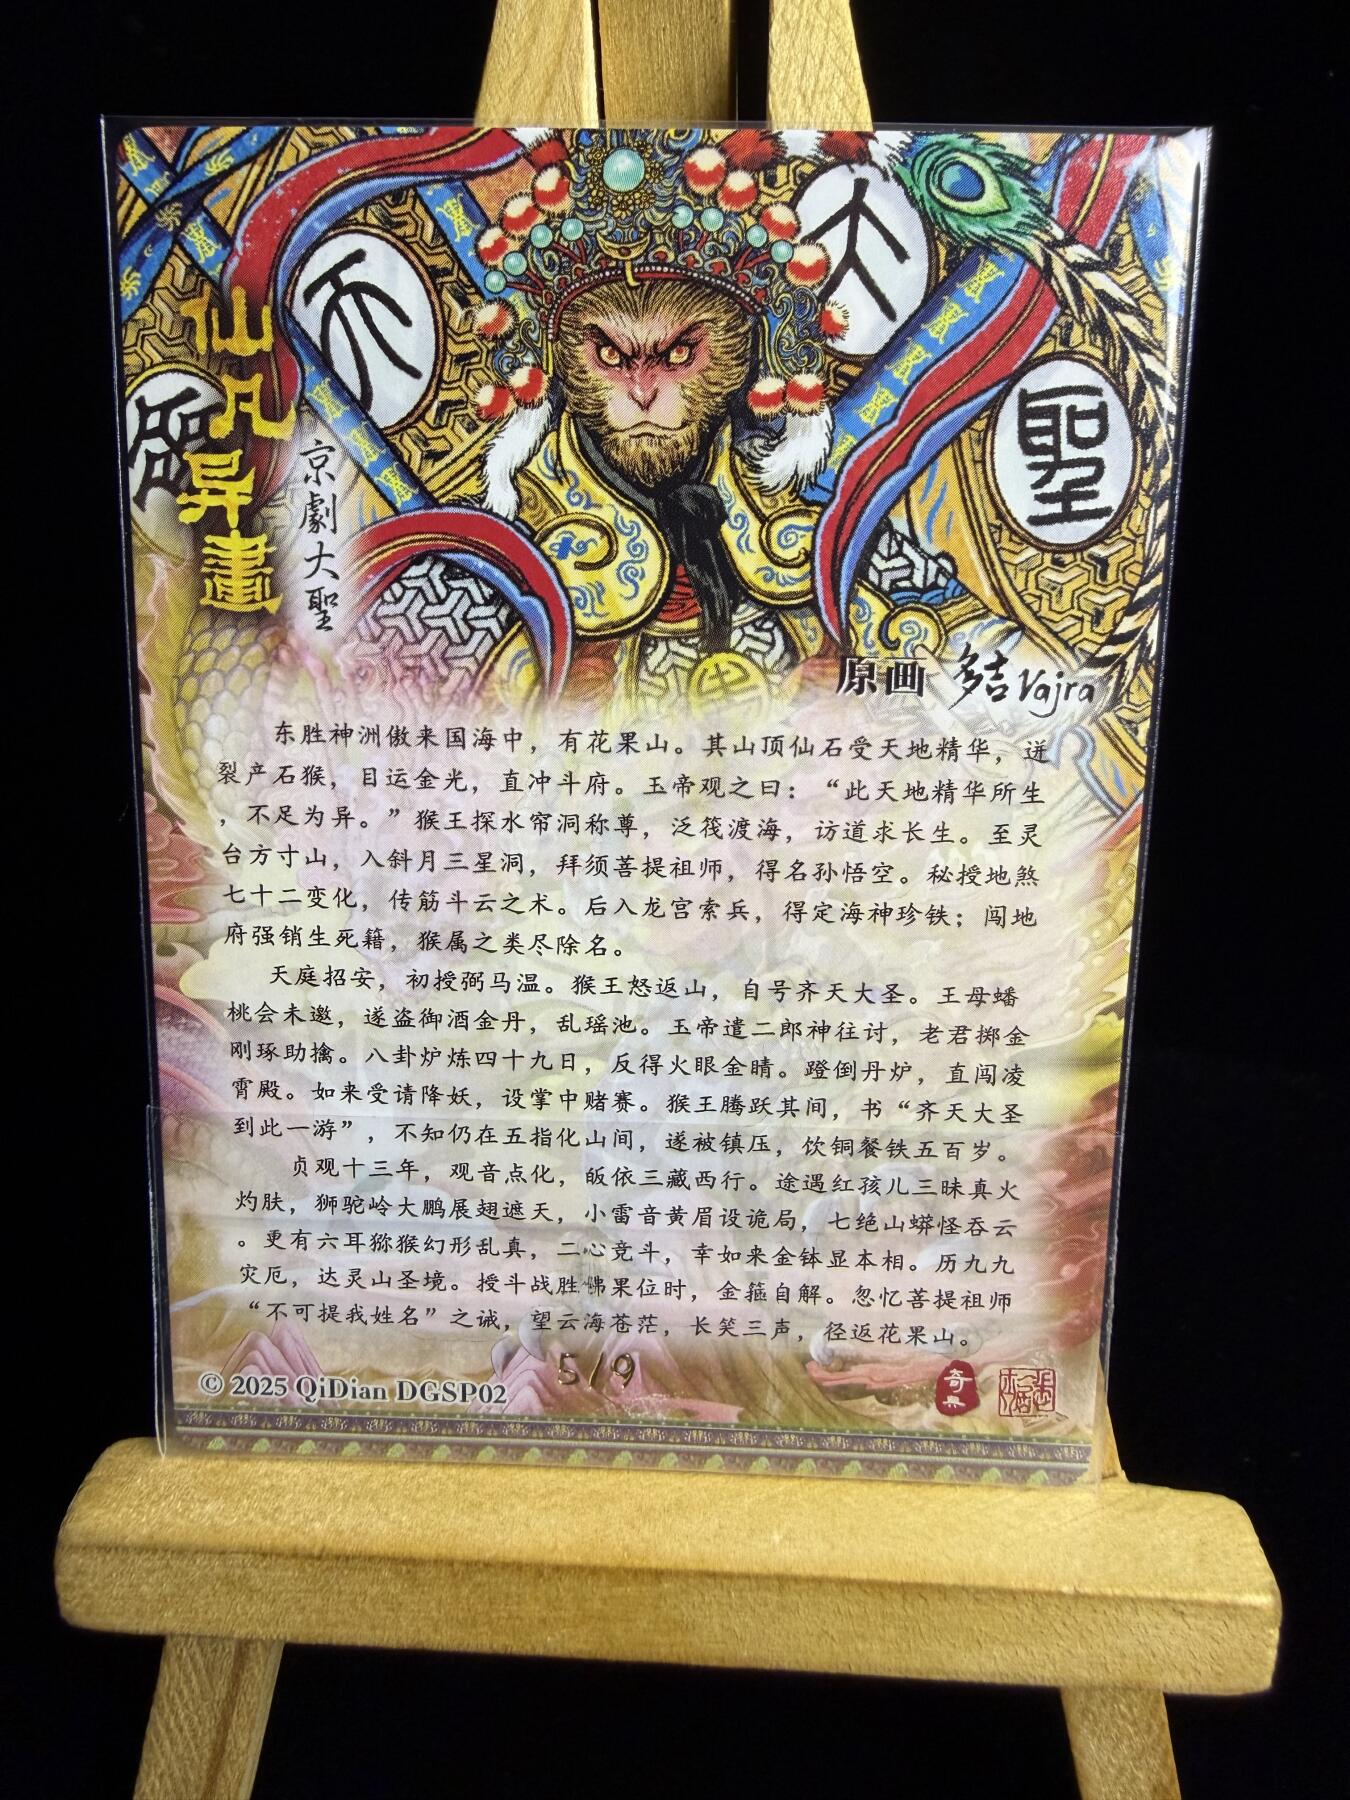 天
大
聖
仙凡异畫
京劇大聖
原画 多吉 Vajra
东胜神洲傲来国海中，有花果山。其山顶仙石受天地精华，迸
裂产石猴，目运金光，直冲斗府。玉帝观之曰：“此天地精华所生
，不足为异。”猴王探水帘洞称尊，泛筏渡海，访道求长生。至灵
台方寸山，入斜月三星洞，拜须菩提祖师，得名孙悟空。秘授地煞
七十二变化，传筋斗云之术。后入龙宫索兵，得定海神珍铁；闯地
府强销生死籍，猴属之类尽除名。
天庭招安，初授弼马温。猴王怒返山，自号齐天大圣。王母蟠
桃会未邀，遂盗御酒金丹，乱瑶池。玉帝遣二郎神往讨，老君掷金
刚琢助擒。八卦炉炼四十九日，反得火眼金睛。蹬倒丹炉，直闯凌
霄殿。如来受请降妖，设掌中赌赛。猴王腾跃其间，书“齐天大圣
到此一游”，不知仍在五指化山间，遂被镇压，饮铜餐铁五百岁。
贞观十三年，观音点化，皈依三藏西行。途遇红孩儿三昧真火
灼肤，狮驼岭大鹏展翅遮天，小雷音黄眉设诡局，七绝山蟒怪吞云
。更有六耳猕猴幻形乱真，二心竞斗，幸如来金钵显本相。历九九
灾厄，达灵山圣境。授斗战胜佛果位时，金箍自解。忽忆菩提祖师
“不可提我姓名”之诫，望云海苍茫，长笑三声，径返花果山。
5/9
© 2025 QiDian DGSP02
奇典